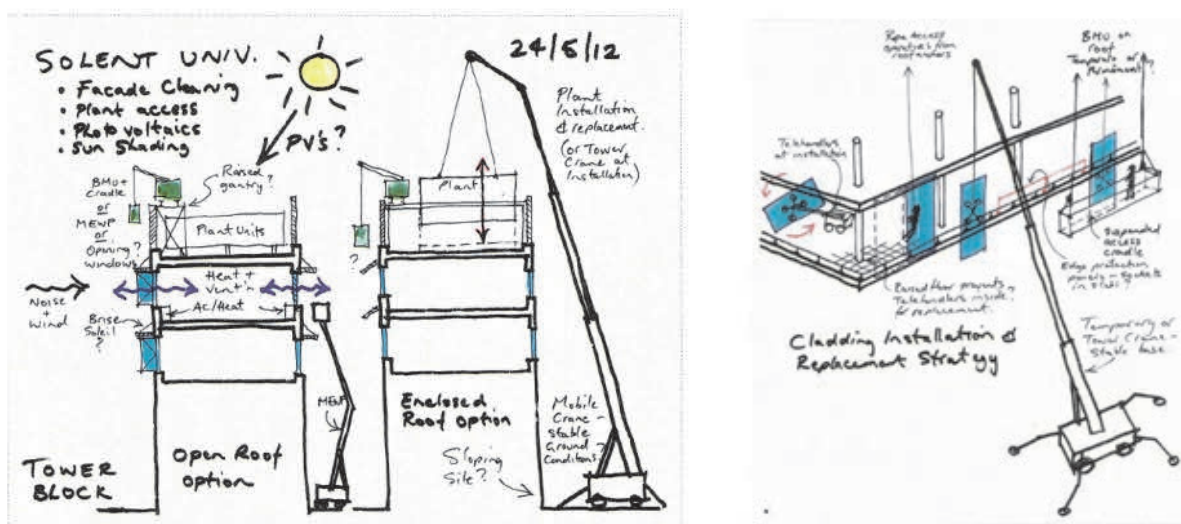 SOLENT UNIV.
• Facade Cleaning
• Plant access
• Photo voltaics
• Sun Shading
PV's?
24/5/12
Raised
gantry?
BMU +
Cradle
or
MEWP
or
Opening?
windows
Plant Units
Noise
+
Wind
Heat +
Vent'n
AC/Heat
Brise
Soleil
?
MEWP
TOWER
BLOCK
Open Roof
Option
Plant
?
Plant
Installation
& replacement.
(or Tower
Crane at
Installation)
Enclosed
Roof Option
Sloping
Site?
Mobile
Crane -
stable
Ground
Conditions?
Rope access
from
BMU on
roof
Temporary or
Permanent?
Telehandlers
at installation
Suspended
access
cradle
Edge protection
panels - sockets
in slab?
Raised floor prevents
Telehandlers inside
for replacement.
Cladding Installation &
Replacement Strategy
Temporary or
Tower Crane -
Stable base